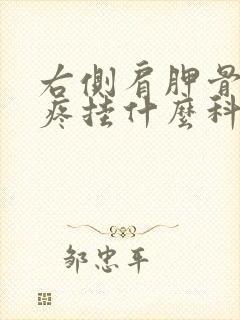 右側肩胛骨
疼挂什麼科
邹忠平